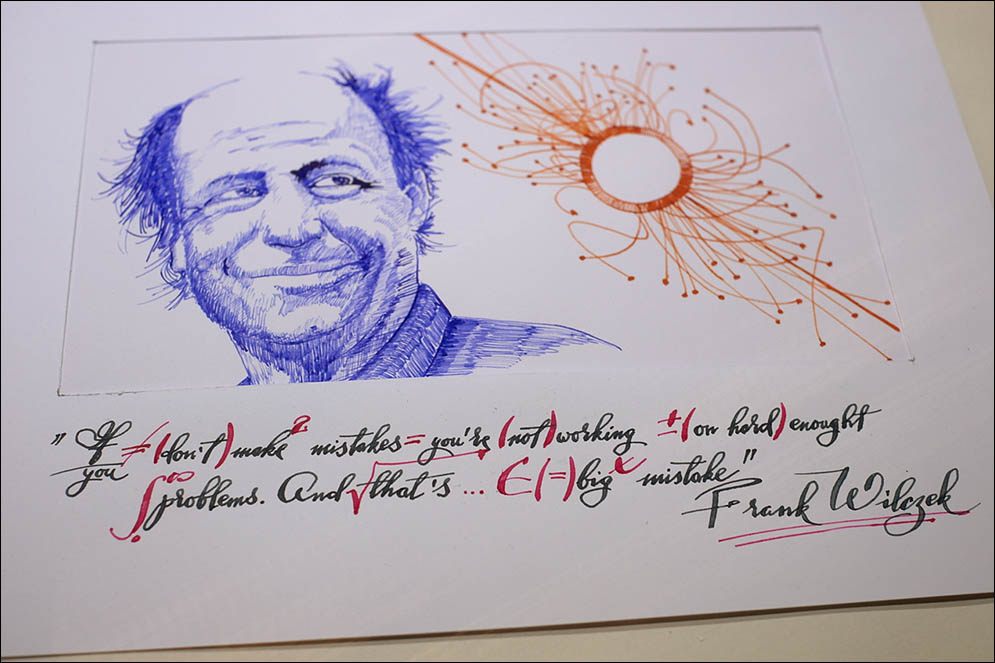 " If you ≠ (don't) make² mistakes = you're (not) working ± (on hard) enought
∫∞ problems. And √that's ... ∈ (=) big mistake"
Frank Wilczek